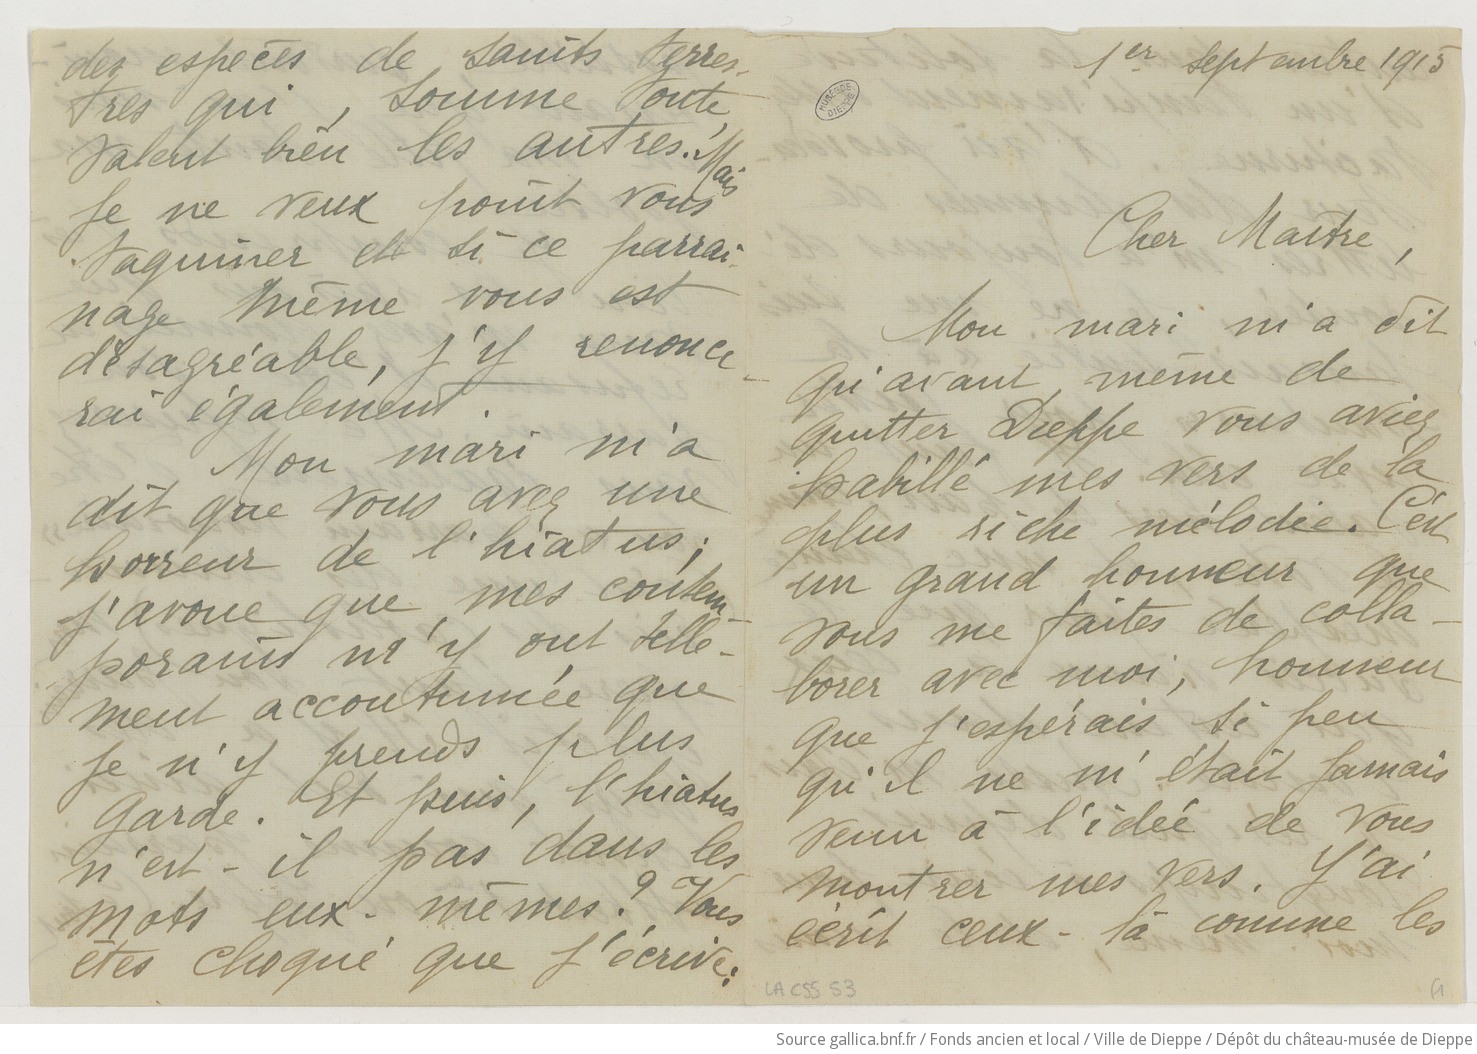 des espèces de saints terres-
tres qui, somme toute,
valent bien les autres! Mais
je ne veux point vous
taquiner et si ce parrai-
nage même vous est
désagréable, j'y renonce-
rai également.
Mon mari m'a
dit que vous avez une
horreur de l'hiatus;
j'avoue que mes contem-
porains m'y ont telle-
ment accoutumée que
je n'y prends plus
garde. Et puis, l'hiatus
n'est-il pas dans les
mots eux-mêmes? Vous
êtes choqué que j'écrive:
1er septembre 1915
MUSÉE DE DIEPPE
Cher Maître,
Mon mari m'a dit
qu'avant même de
quitter Dieppe vous aviez
habillé mes vers de la
plus riche mélodie. C'est
un grand honneur que
vous me faites de colla-
borer avec moi, honneur
que j'espérais si peu
qu'il ne m'était jamais
venu à l'idée de vous
montrer mes vers. J'ai
écrit ceux-là comme les
LA C55 S3
Source gallica.bnf.fr / Fonds ancien et local / Ville de Dieppe / Dépôt du château-musée de Dieppe